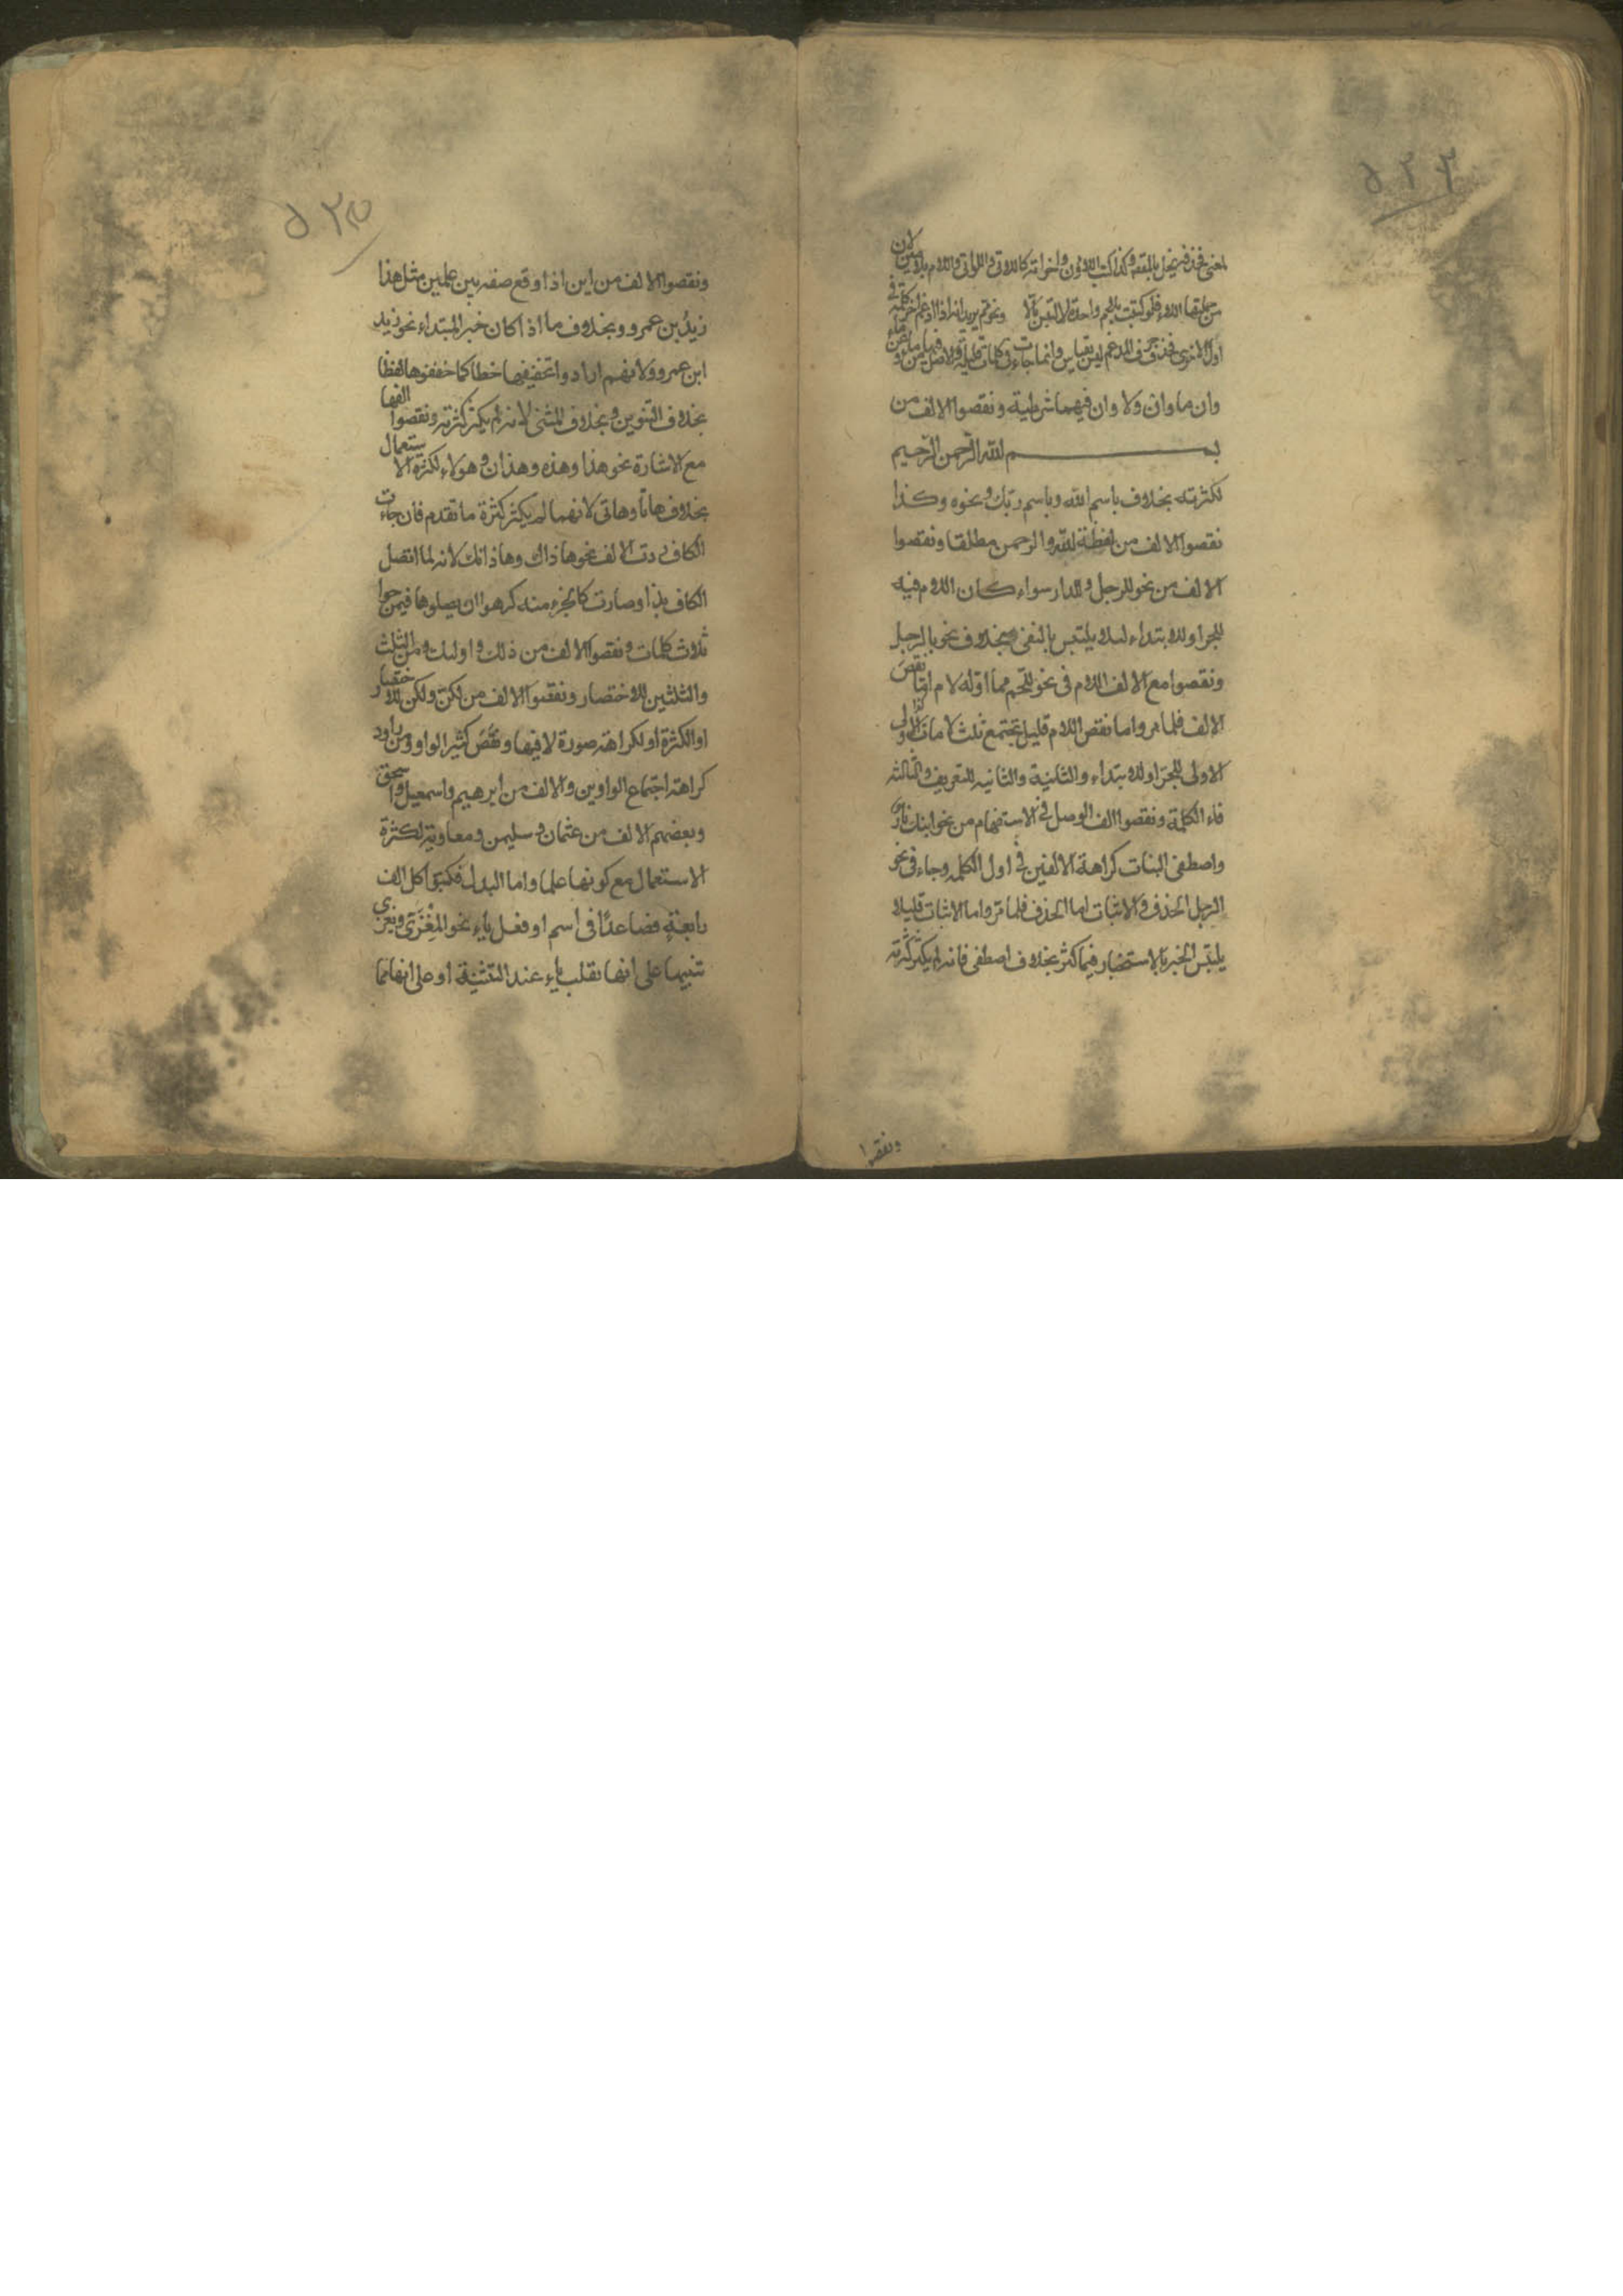 ٥٢٣
لمعنى فحذفه يخل بالمقصود وكذا كتب اللاؤن واخواته كاللاتى واللواتى واللاء بلامين لان
من جملتها اللاء فلو كتبت بلام واحدة لالتبس بالا ونحو عم يريد انه اذا ادغم اخر كلمة فى
اول الاخرى فحذف حرف المدغم ليس بقياس وانما جاءت فى كلمات قليلة والاصل من ما وعن ما
وان ما وان ولا وان فيهما شرطية ونقصوا الالف من
بسم الله الرحمن الرحيم
لكثرته بخلاف باسم الله وباسم ربك ونحوه وكذا
نقصوا الالف من لفظة لله والرحمن مطلقا ونقصوا
الالف من نحو للرجل وللدار سواء كان اللام فيه
للجر او للابتداء لئلا يلتبس بالنفى بخلاف نحو بالرجل
ونقصوا مع الالف اللام فى نحو للحم مما اوله لام اما نقص
الالف فلما مر واما نقص اللام قليل تجتمع ثلث لامات
الاولى للجر او للابتداء والثانية للتعريف والثالثه
فاء الكلمة ونقصوا الف الوصل فى الاستفهام من نحو ابنك بار
واصطفى البنات كراهة الالفين فى اول الكلمه وجاء فى نحو
الرجل الحذف والاثبات اما الحذف فلما مر واما الاثبات فليلا
يلتبس الخبر بالاستخبار فيما كثر بخلاف اصطفى فانه لم يكثر كثرته
ونقصوا
ونقصوا الالف من ابن اذا وقع صفه بين علمين مثل هذا
زيد بن عمرو وبخلاف ما اذا كان خبر المبتداء نحو زيد
ابن عمرو ولانهم ارادوا تخفيفها خطا كما خففوها لفظا
بحذف التنوين وبخلاف المثنى لانه لم يكثر كثرته ونقصوا الفها
مع الاشارة نحو هذا وهذه وهذان وهولاء لكثرة الاستعمال
بخلاف هاتا وهاتى لانهما لم يكثر كثرة ما تقدم فان جاءت
الكاف ردت الالف نحو هاذاك وهاذانك لانه لما اتصل
الكاف بذا وصارت كالجزء منه كرهوا ان يصلوها فيمزجوا
ثلاث كلمات ونقصوا الالف من ذلك واولئك ومن الثلث
والثلثين للاختصار ونقصوا الالف من لكن ولكن للاختصار
او الكثرة او لكراهة صورة لا فيها ونقص كثير الواو من داود
كراهة اجتماع الواوين والالف من ابرهيم واسمعيل واسحق
وبعضهم الالف من عثمان وسليمن ومعاوية لكثرة
الاستعمال مع كونها علما واما البدل فكتبوا كل الف
رابعة فصاعدا فى اسم او فعل ياء نحو المغزى ويغزى
تنبيها على انها تقلب ياء عند التثنية او على انها مما